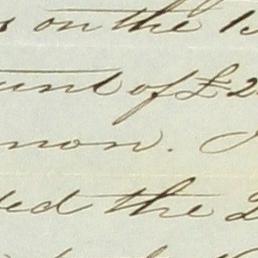 s on the 15
unt of £2
non.
ed the 2